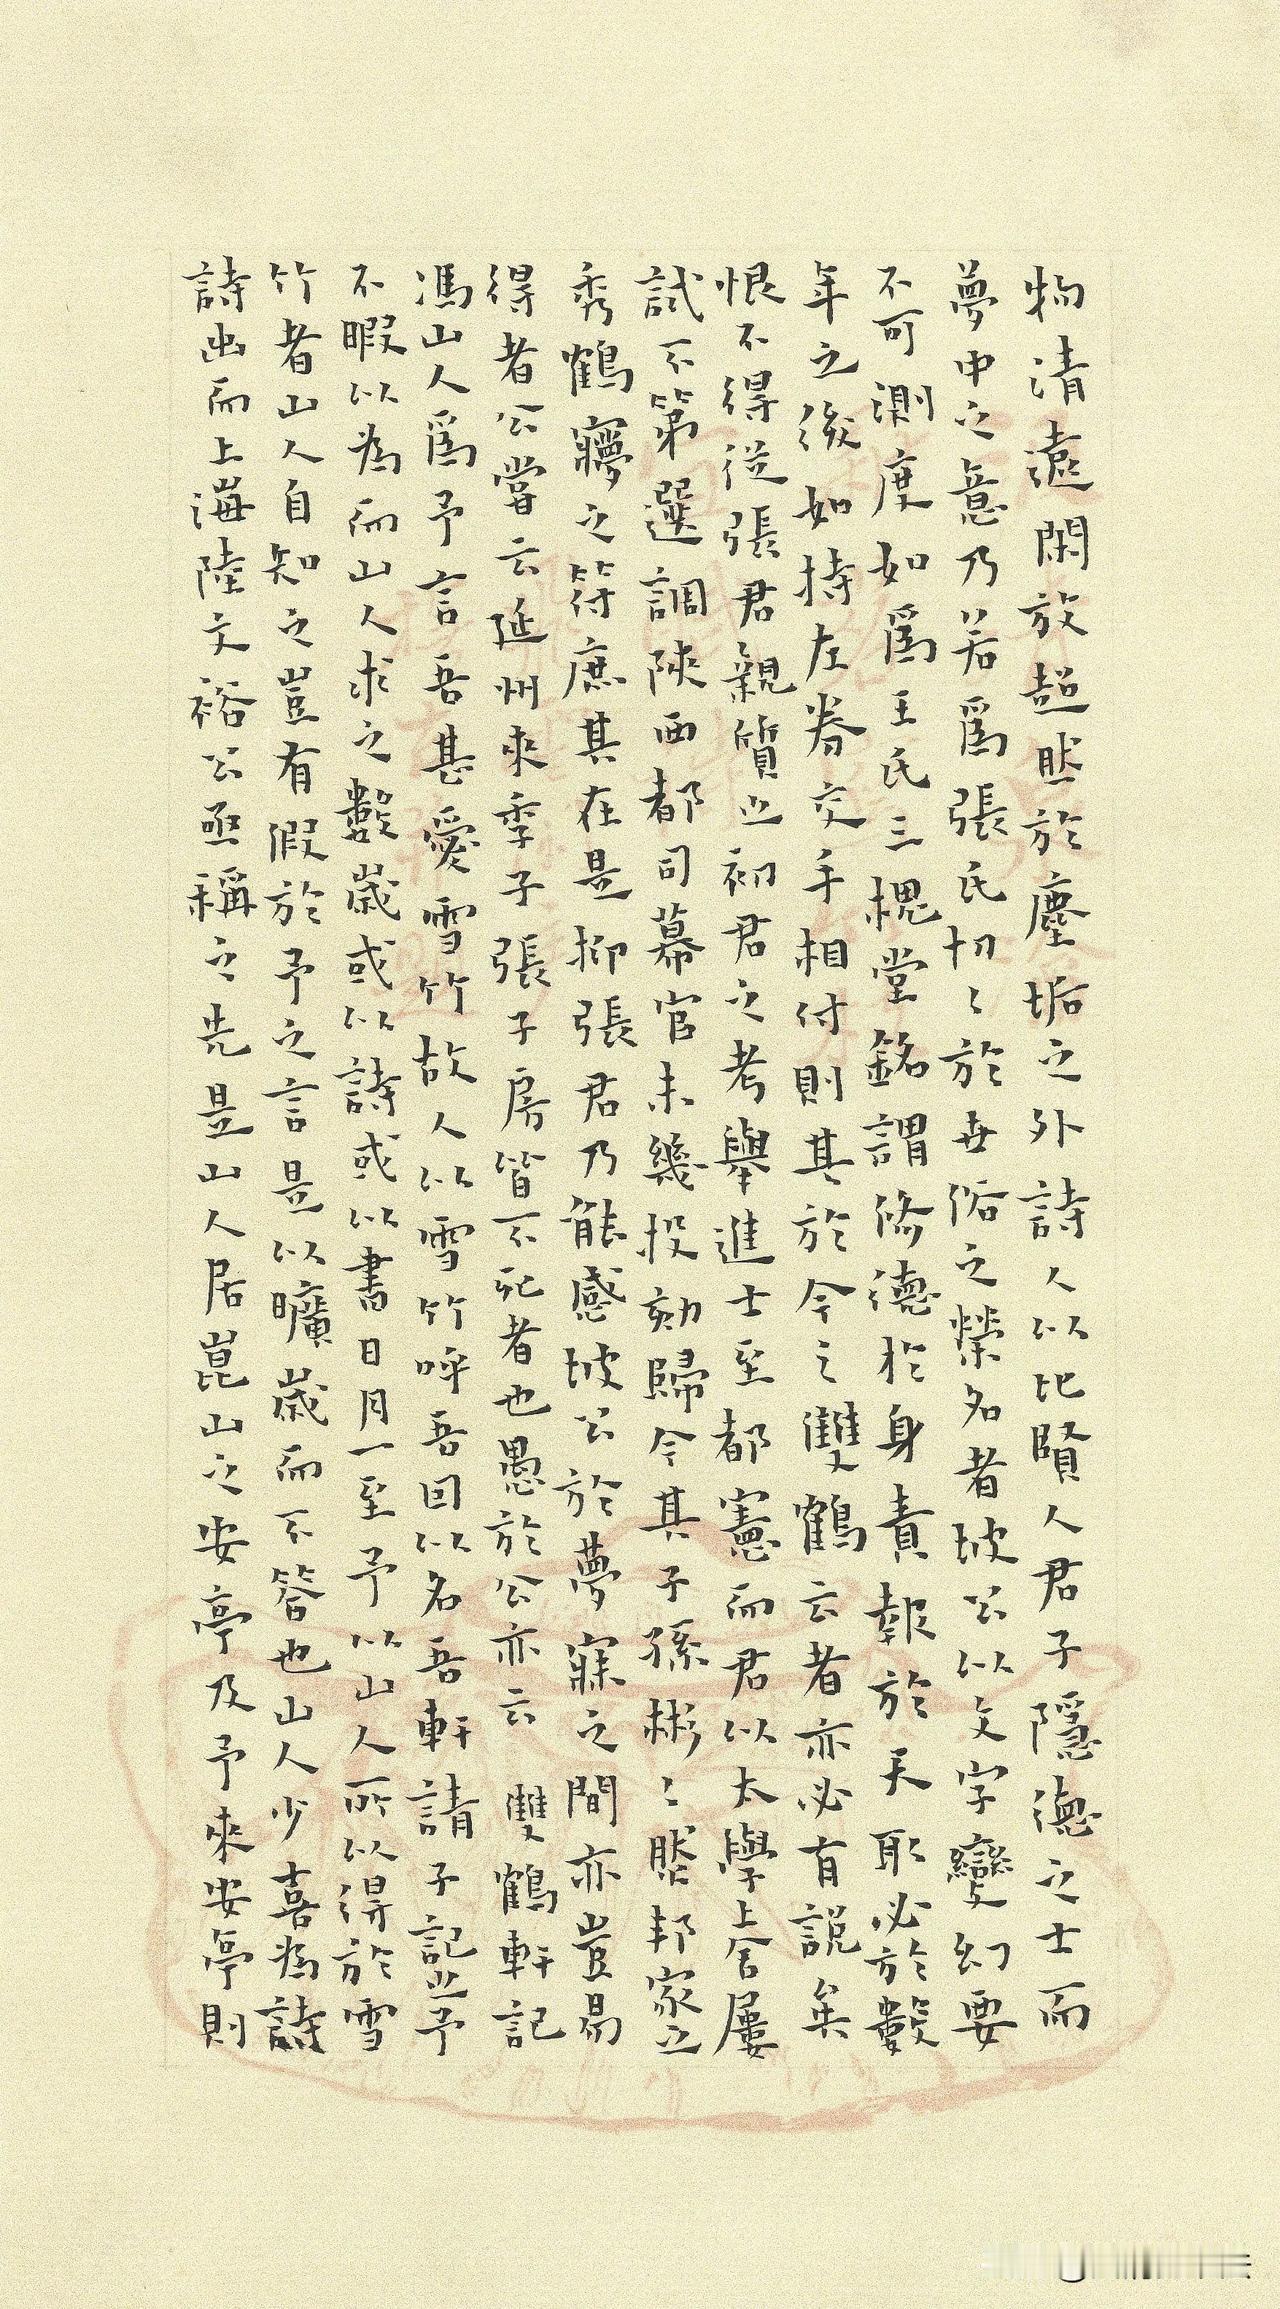 物清遠閑放超然於塵垢之外詩人以比賢人君子隱德之士而
夢中之意乃若爲張氏切〻於世俗之榮名者坡公以文字變幻要
不可測度如爲王氏三槐堂銘謂修德於身責報於天取必於數
年之後如持左券交手相付則其於今之雙鶴云者亦必有說矣
恨不得從張君親質之初君之考舉進士至都憲而君以太學上舍屢
試不第選調陝西都司幕官未幾投劾歸今其子孫彬〻然邦家之
秀鶴寢之符庶其在是抑張君乃能感坡公於夢寐之間亦豈易
得者公嘗云延州來季子張子房皆不死者也愚於公亦云 雙鶴軒記
馮山人爲予言吾甚愛雪竹故人以雪竹呼吾因以名吾軒請子記之予
不暇以為而山人求之數歲或以詩或以書日月一至予以山人所以得於雪
竹者山人自知之豈有假於予之言是以曠歲而不答也山人少喜為詩
詩出而上海陸文裕公亟稱之先是山人居崑山之安亭及予來安亭則